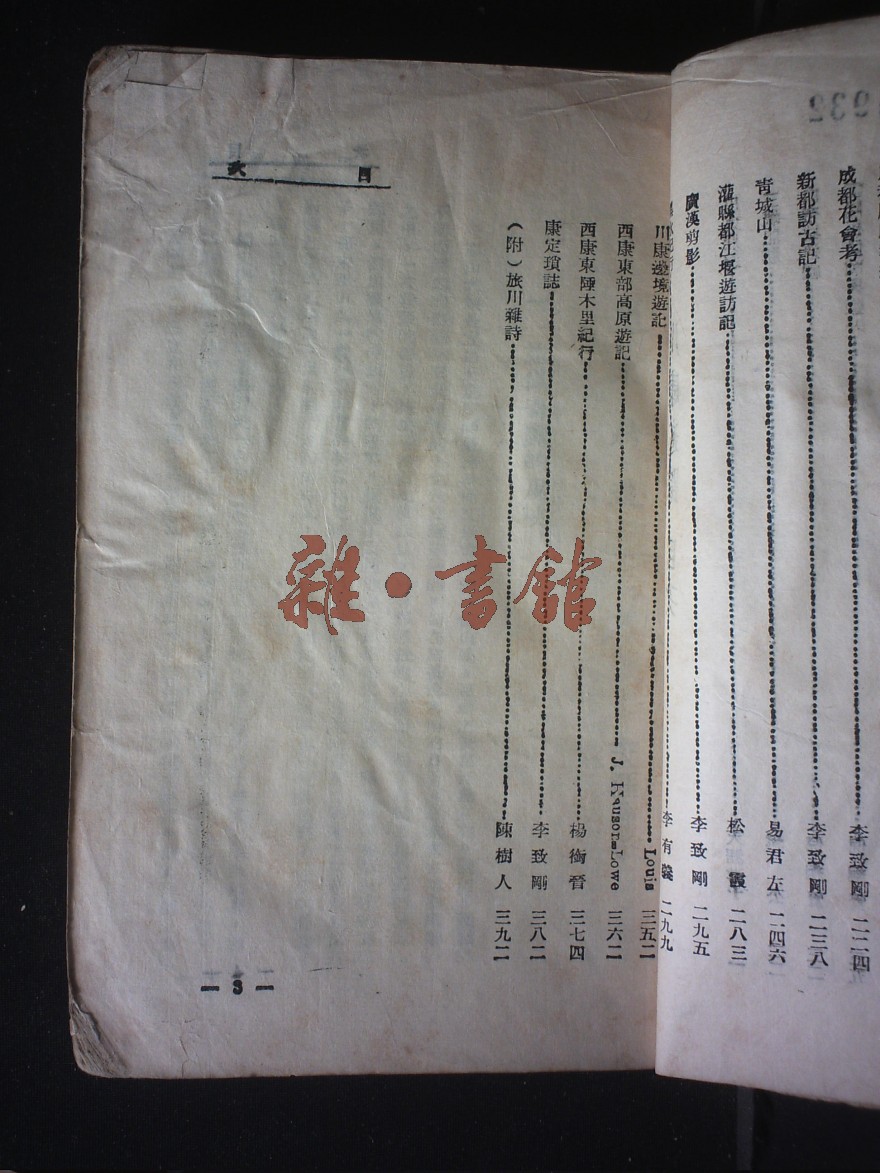 932
成都花會考 李致剛 二二四
新都訪古記 李致剛 二三八
青城山 易君左 二四六
灌縣都江堰遊訪記 松霞 二八三
廣漢剪影 李致剛 二九五
李有 二九九
目次
川康邊境遊記 Louis 三五二
西康東部高原遊記 J. Lowe 三六二
西康東陲木里紀行 楊衡晉 三七四
康定瑣誌 李致剛 三八二
（附）旅川雜詩 陳樹人 三九二
— 3 —
雜·書館